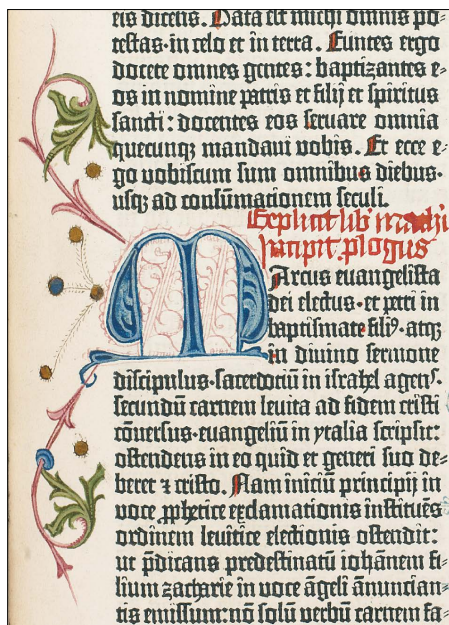 eis dicens. Data est michi omnis po-
testas·in celo et in terra. Euntes ergo
docete omnes gentes: baptizantes e-
os in nomine patris et filij et spiritus
sancti: docentes eos servare omnia
quecunq; mandavi vobis. Et ecce e-
go vobiscum sum omnibus diebus·
usq; ad consūmationem seculi.
Explicit lib mathi
Incipit plogus
Marcus evangelista
dei electus·et petri in
baptismate filiꝰ·atq;
in divino sermone
discipulus·sacerdociū in israhel agenꝰ·
secundū carnem levita ad fidem cristi
cōversus·evangeliū in ytalia scripsit:
ostendens in eo quid et generi suo de-
beret ⁊ cristo. Nam iniciū principij in
voce ꝓphetice exclamationis instituēs
ordinem levitice electionis ostendit:
ut p̄dicans predestinatū iohānem fi-
lium zacharie in voce āgeli ānuncian-
tis emissum: nō solū verbū carnem fa-